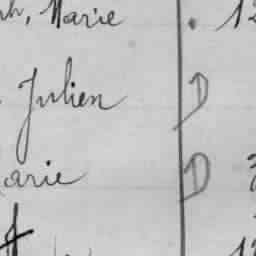 Marie . 12
Julien D
arie D